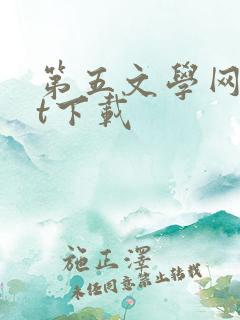 第五文學网
t下載
施正澤
未经同意禁止转载